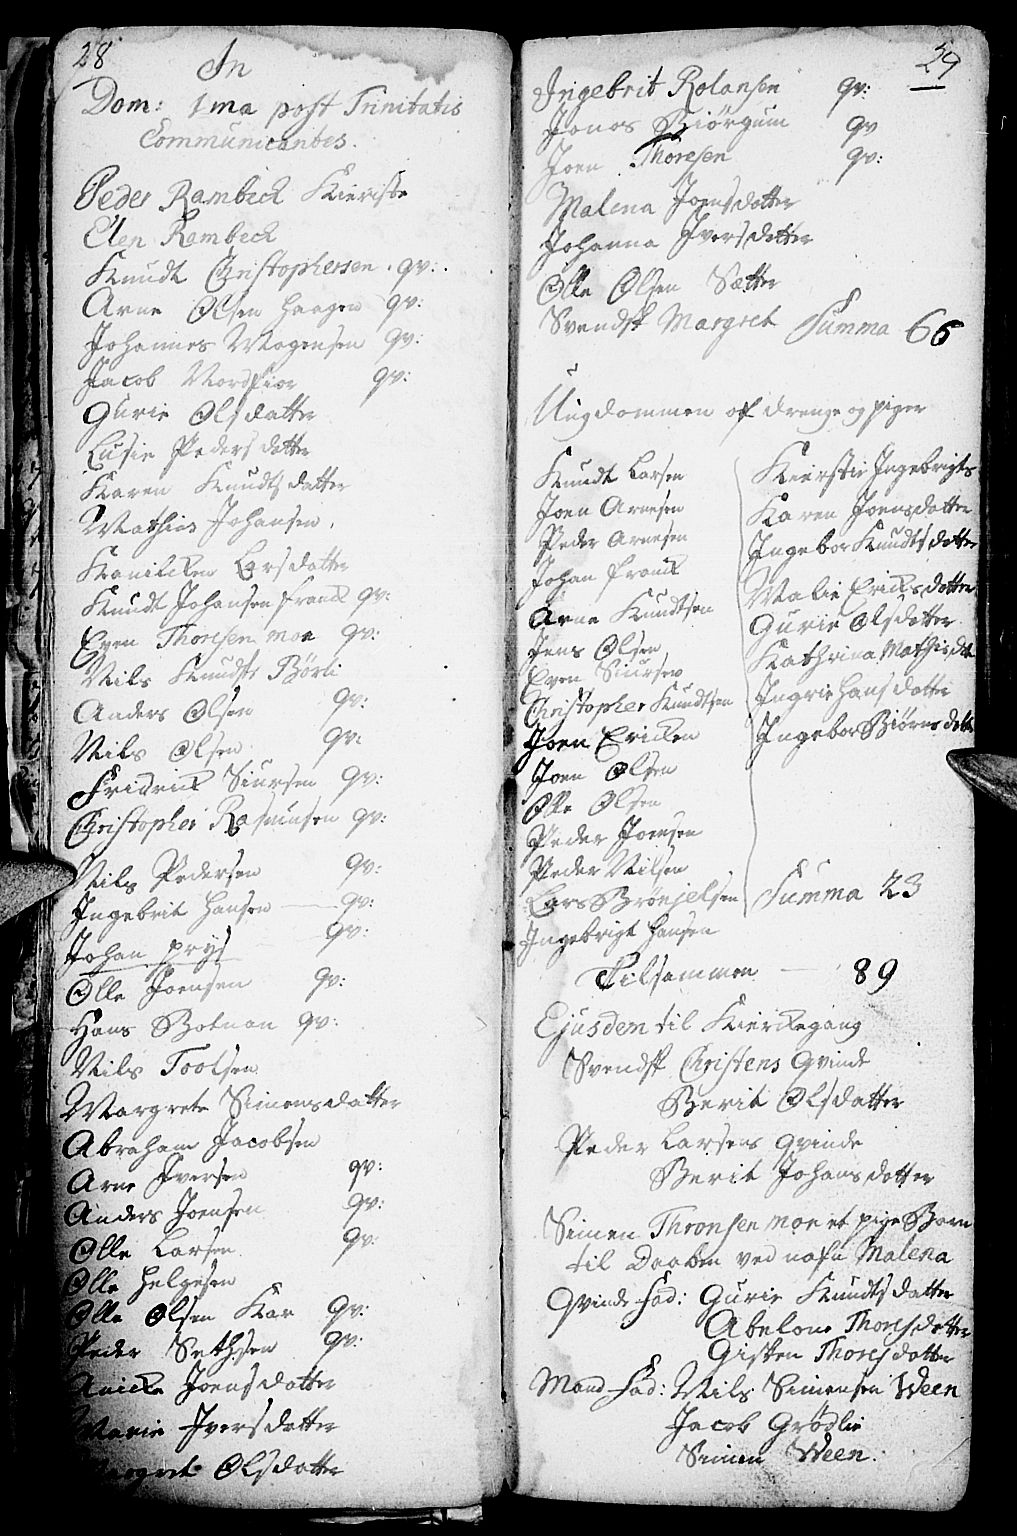 28
In
Dom: 1ma post Trinitatis
Communicantes.
Peder Rambech Kieriste
Elen Rambech
Knudt Christophersen. qv:
Arne Olsen Haagen qv:
Johannes Mogensen qv:
Jacob Nordfior qv:
Gurie Olsdatter
Lusie Pedersdatter
Karen Knudtsdatter
Mathias Johansen.
Larsdatter
Knudt Johansen franck qv:
Even Thoresen moe qv:
Nils Knudts Børli
Anders Olsen qv:
Nils Olsen qv:
Fridrick Siursen qv:
Christopher Rasmusen qv:
Nils Pedersen qv:
Ingebrit Hansen qv:
Johan prys qv:
Olle Joensen qv:
Hans Botnan qv:
Nils Toolsen
Margrete Simensdatter
Abraham Jacobsen
Arne Iversen qv:
Anders Joensen qv:
Olle Larsen qv:
Olle Helgesen
Olle Olsen Kar qv:
Peder Sethsen qv:
Anicke Joensdatter
Marie Iversdatter
Margret Olsdatter
29
Ingebrit Rolansen qv:
Jonas Biørgum qv
Joen Thoresen qv:
Malena Joensdatter
Johanna Iversdatter
Olle Olsen Sætter
Svendsk Margret Summa 66
Ungdommen af drenge og piger
Knudt Larsen
Joen Arnesen
Peder Arnesen
Johan franck
Arne Knudtsen
Jens Olsen
Even Siursen
Christopher Knudtsen
Joen Ericken
Joen Olsen
Olle Olsen
Peder Joensen
Peder Nilsen
Lars Brønjelsen
Ingebrigt Hansen
Kierstie Ingebrigts
Karen Joensdatter
Ingebor Knudtsdatter
Malie Ericksdatter
Gurie Olsdatter
Kathrina Mathisdtt
Ingrie Hansdatter
Ingebor Biørnsdatt
Summa 23
Tilsammen 89
Ejusdem til Kierckegang
Svendsk Christens Qvinde
Berit Olsdatter
Peder Larsens qvinde
Berit Johansdatter
Simen Thronsen moe et pige Barn
til Daaben ved nafn Malena
Qvinde fad: Gurie Knudtsdatter
Abelone Thoresdatter
Gisken Thoresdatter
Mand fad: Nils Simensen Ween
Jacob Grødlie
Simen Ween.